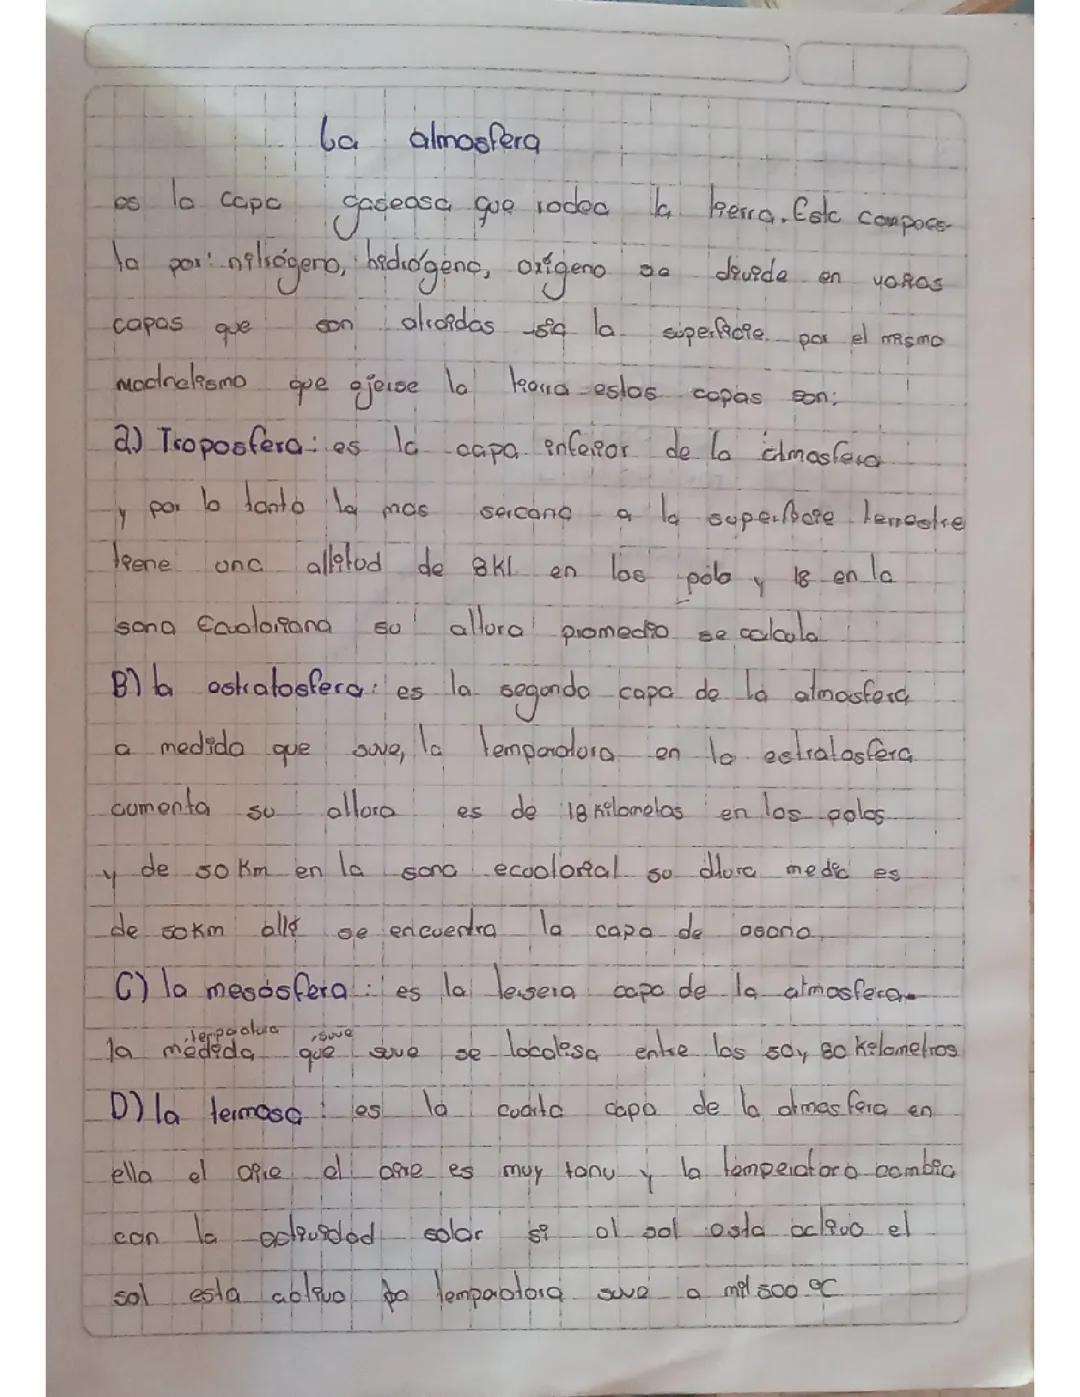 La atmosfera
es la capa gaseosa que rodea la tierra. Esta compoes-
ta por: nitrógeno, hidrógeno, oxígeno se divide en varas
capas que son atraidas sia la superficie por el mismo
que ejerse la tierra estas capas son:
a) Troposfera: es la capa inferior de la atmosfera
y por lo tanto la mas sercana a la superficie terrestre
tiene una altitud de 8kl en los polo y 18 en la
sona Ecuatoriana su altura promedio se calcula
B) la estratosfera: es la segunda capa de la atmosfera
a medida que suve, la temparatura en la estratosfera
aumenta su altura es de 18 kilometos en los polos
y de 50 Km en la sona ecuatorial su altura media es
de 50 Km alli se encuentra la capa de osono
C) la mesósfera: es la tersera capa de la atmosfera
temparatura suve
la medida que suve se localisa entre los 50 y 80 Kilometros
D) la termosa: es la cuarta capa de la atmosfera en
ella el aire el aire es muy tanu y la temperatura cambia
con la actividad solar si el sol esta activo el
sol esta abtivo la temparatura suve a mil 500 °C